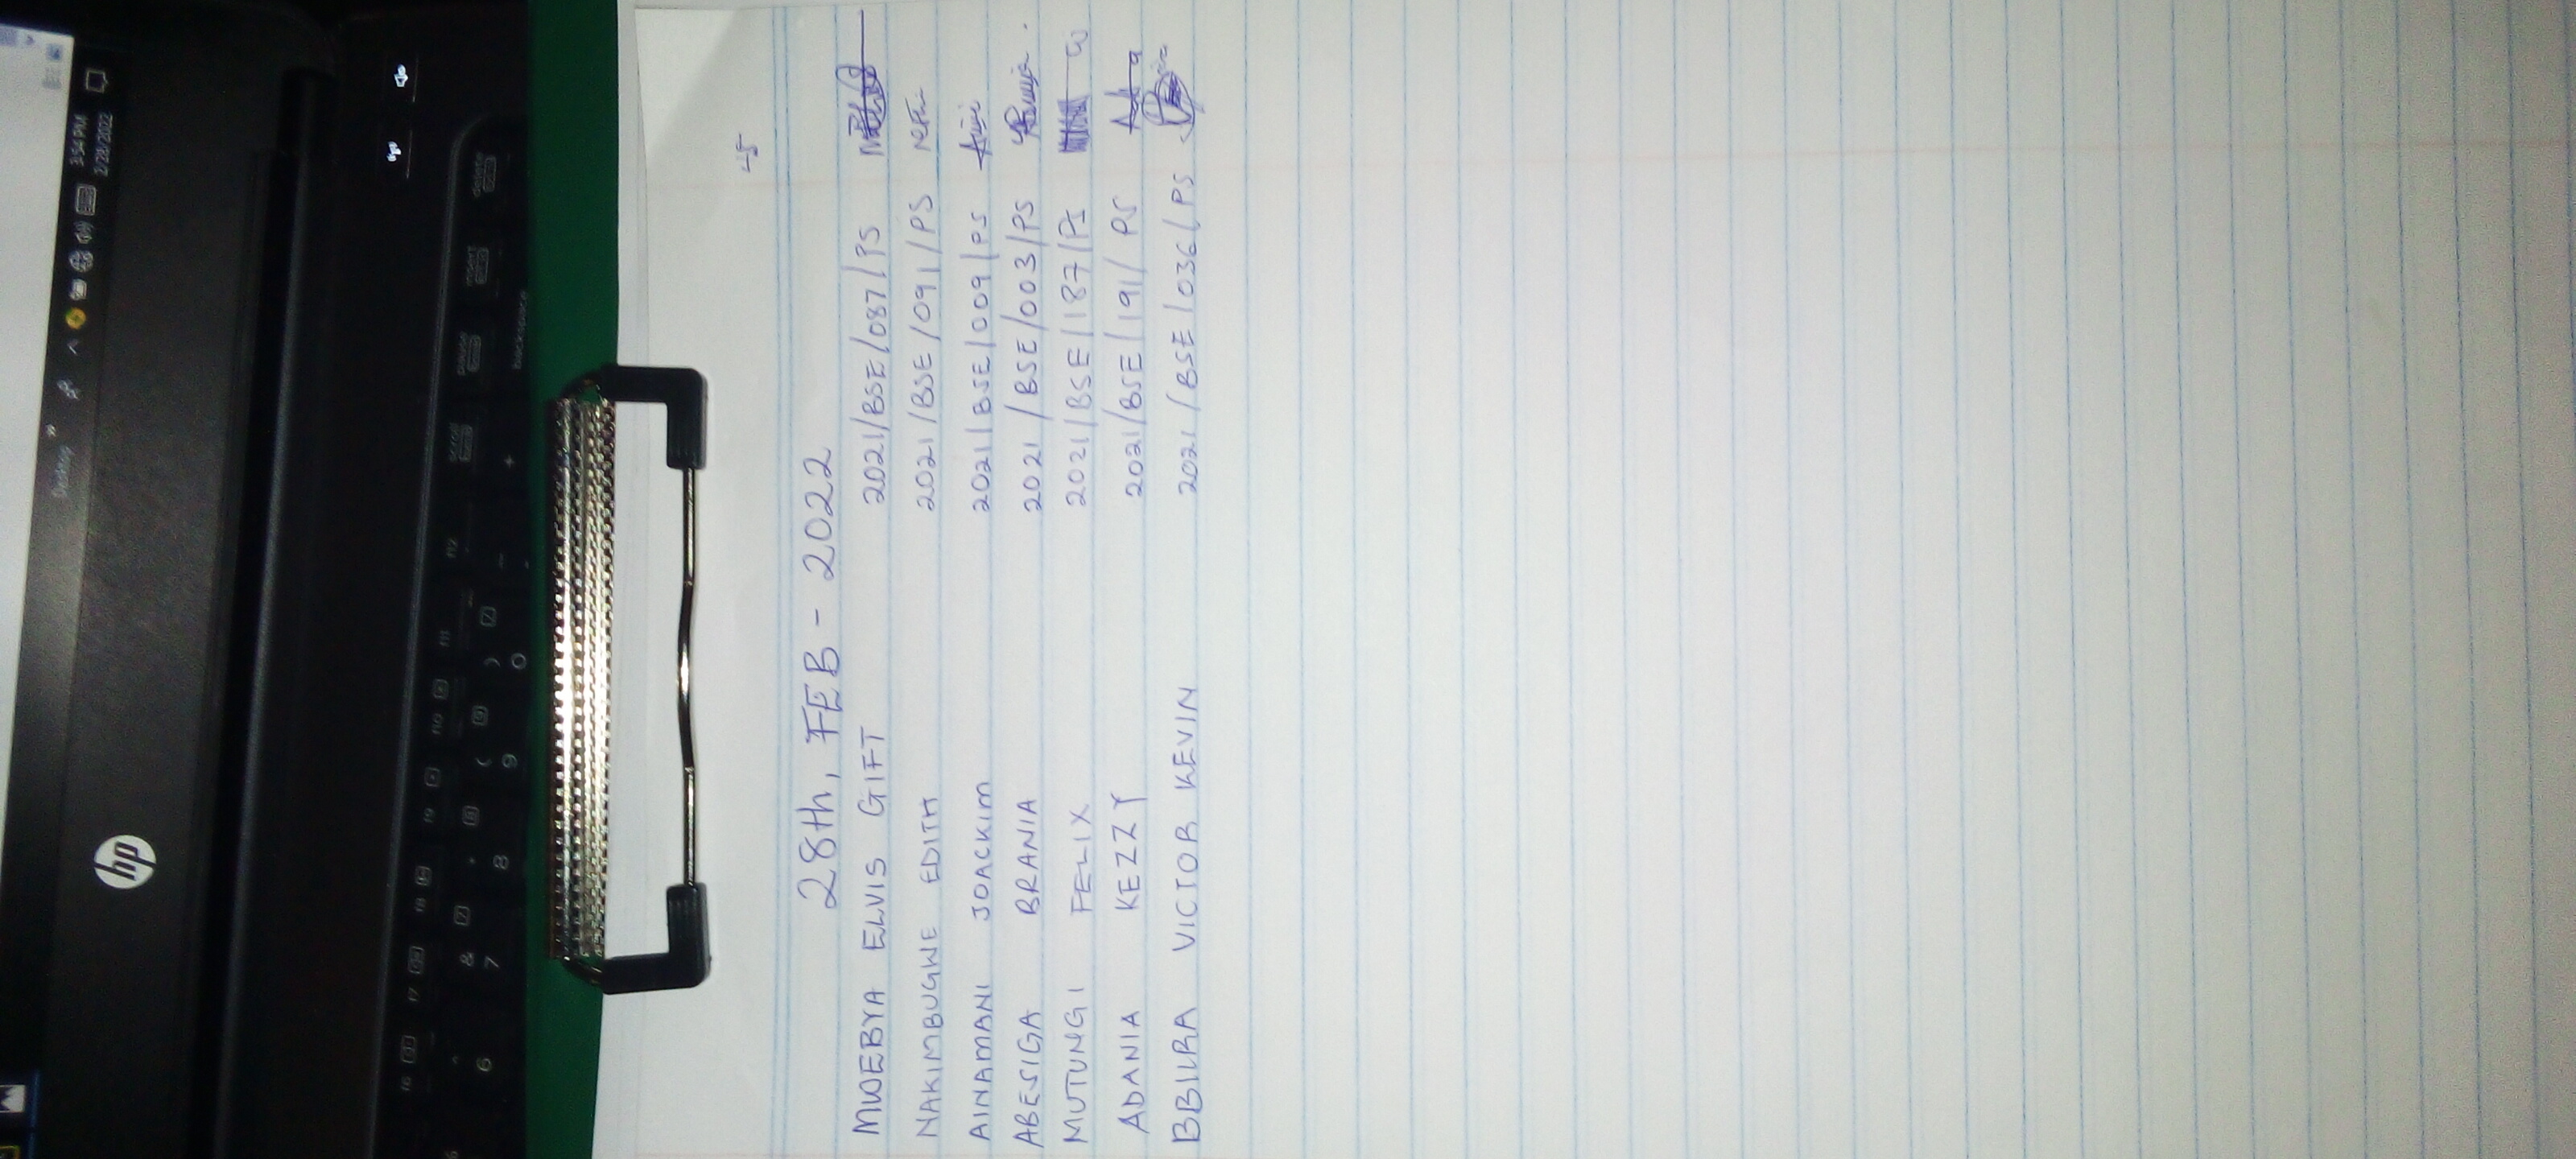 Desktop
3:54 PM
2/28/2022
hp
f6 f7 f8 f9 f10 f11 f12 scroll pause insert delete
6 & 7 8 ( 9 ) 0 - + backspace
45
28th, FEB - 2022
MWEBYA ELVIS GIFT 2021/BSE/087/PS
NAKIMBUGWE EDITH 2021/BSE/091/PS
AINAMANI JOACKIM 2021/BSE/009/PS
ABESIGA BRANIA 2021/BSE/003/PS
MUTUNGI FELIX 2021/BSE/187/PS
ADANIA KEZZY 2021/BSE/191/PS
VICTOR KEVIN 2021/BSE/036/PS